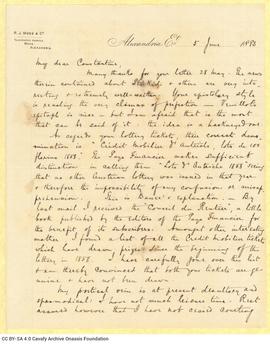 R. J. MOSS & Co.
ALEXANDRIA
Alexandria, Et. 5 June 1883
My dear Constantine,
Many thanks for your letter 28 May. The news
therein contained about & others are very inter-
esting & extremely well written. Your epistolary style
is reaching the very climax of perfection —
epitaph is nice — but I am afraid that is the most
that can be said of it — the idea is a hackneyed one.
As regards your lottery tickets, their correct deno-
mination is "Crédit Mobilier d'Autriche, lots de 100
florins 1858". The Pays Financier makes sufficient
distinction in calling them "Lots d'Autriche 1858" seeing
that no other Austrian lottery was issued in that year
& therefore the impossibility of any confusion or misap-
prehension. This is explanation. By the
last mail I received the "Conseil des Rentiers", a little
book published by the editors of the Pays Financier for
the benefit of its subscribers. Amongst other interesting
matter, I found a list of all the Credit Mobilier tickets
which have drawn prizes since the beginning of the
lottery, in 1858. I have carefully gone over the list
& am thereby convinced that both your tickets are ge-
nuine & have not been drawn.
My poetical vein is at present
spasmodical: I have not much leisure time. Rest
assured however that I have not ceased courting
CC BY-SA 4.0 Cavafy Archive Onassis Foundation